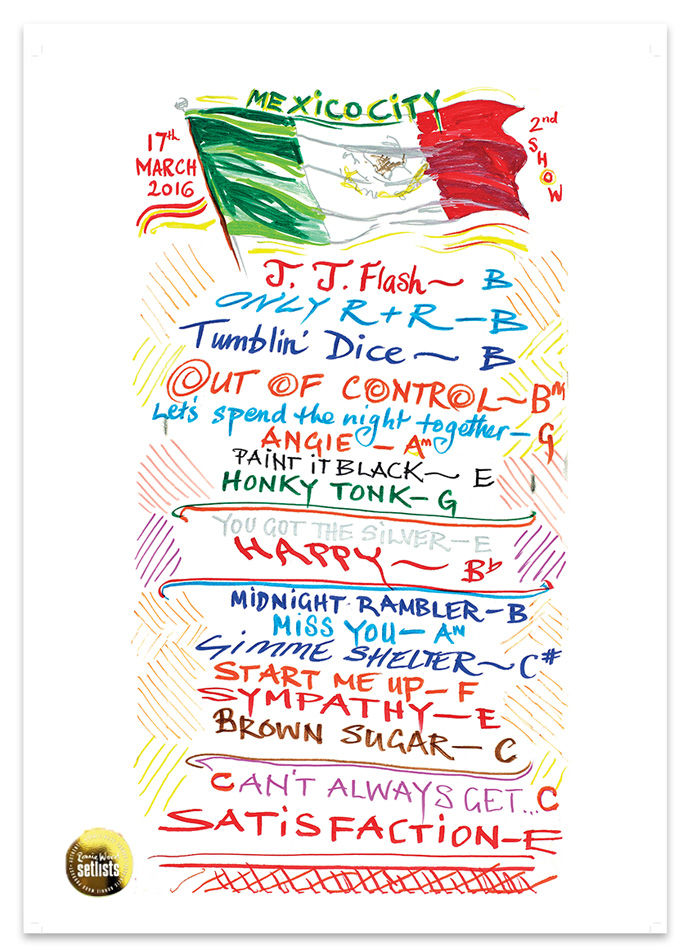 MEXICO CITY
17th
MARCH
2016
2nd
SHOW
J. J. Flash~ B
ONLY R+R-B
Tumblin' Dice ~ B
OUT OF CONTROL~Bm
Let's spend the night together-G
ANGIE - Am
PAINT IT BLACK~ E
HONKY TONK-G
YOU GOT THE SILVER-E
HAPPY~ Bb
MIDNIGHT RAMBLER-B
MISS YOU-Am
GIMME SHELTER~C#
START ME UP-F
SYMPATHY-E
BROWN SUGAR-C
CAN'T ALWAYS GET...C
SATISFACTION-E
Ronnie Wood
setlists